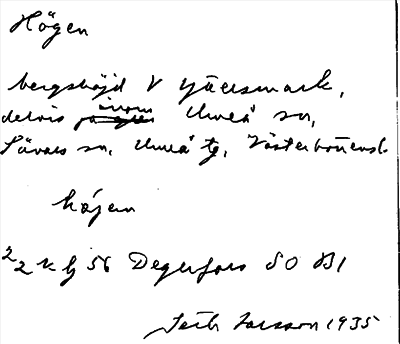 Högen
bergshöjd V Tjälsmark,
delvis inom Umeå sn,
Sävars sn, Umeå tg, Västerbottensl.
högen
22 kbj 56 Degerfors SO B1
Seth Larsson 1935